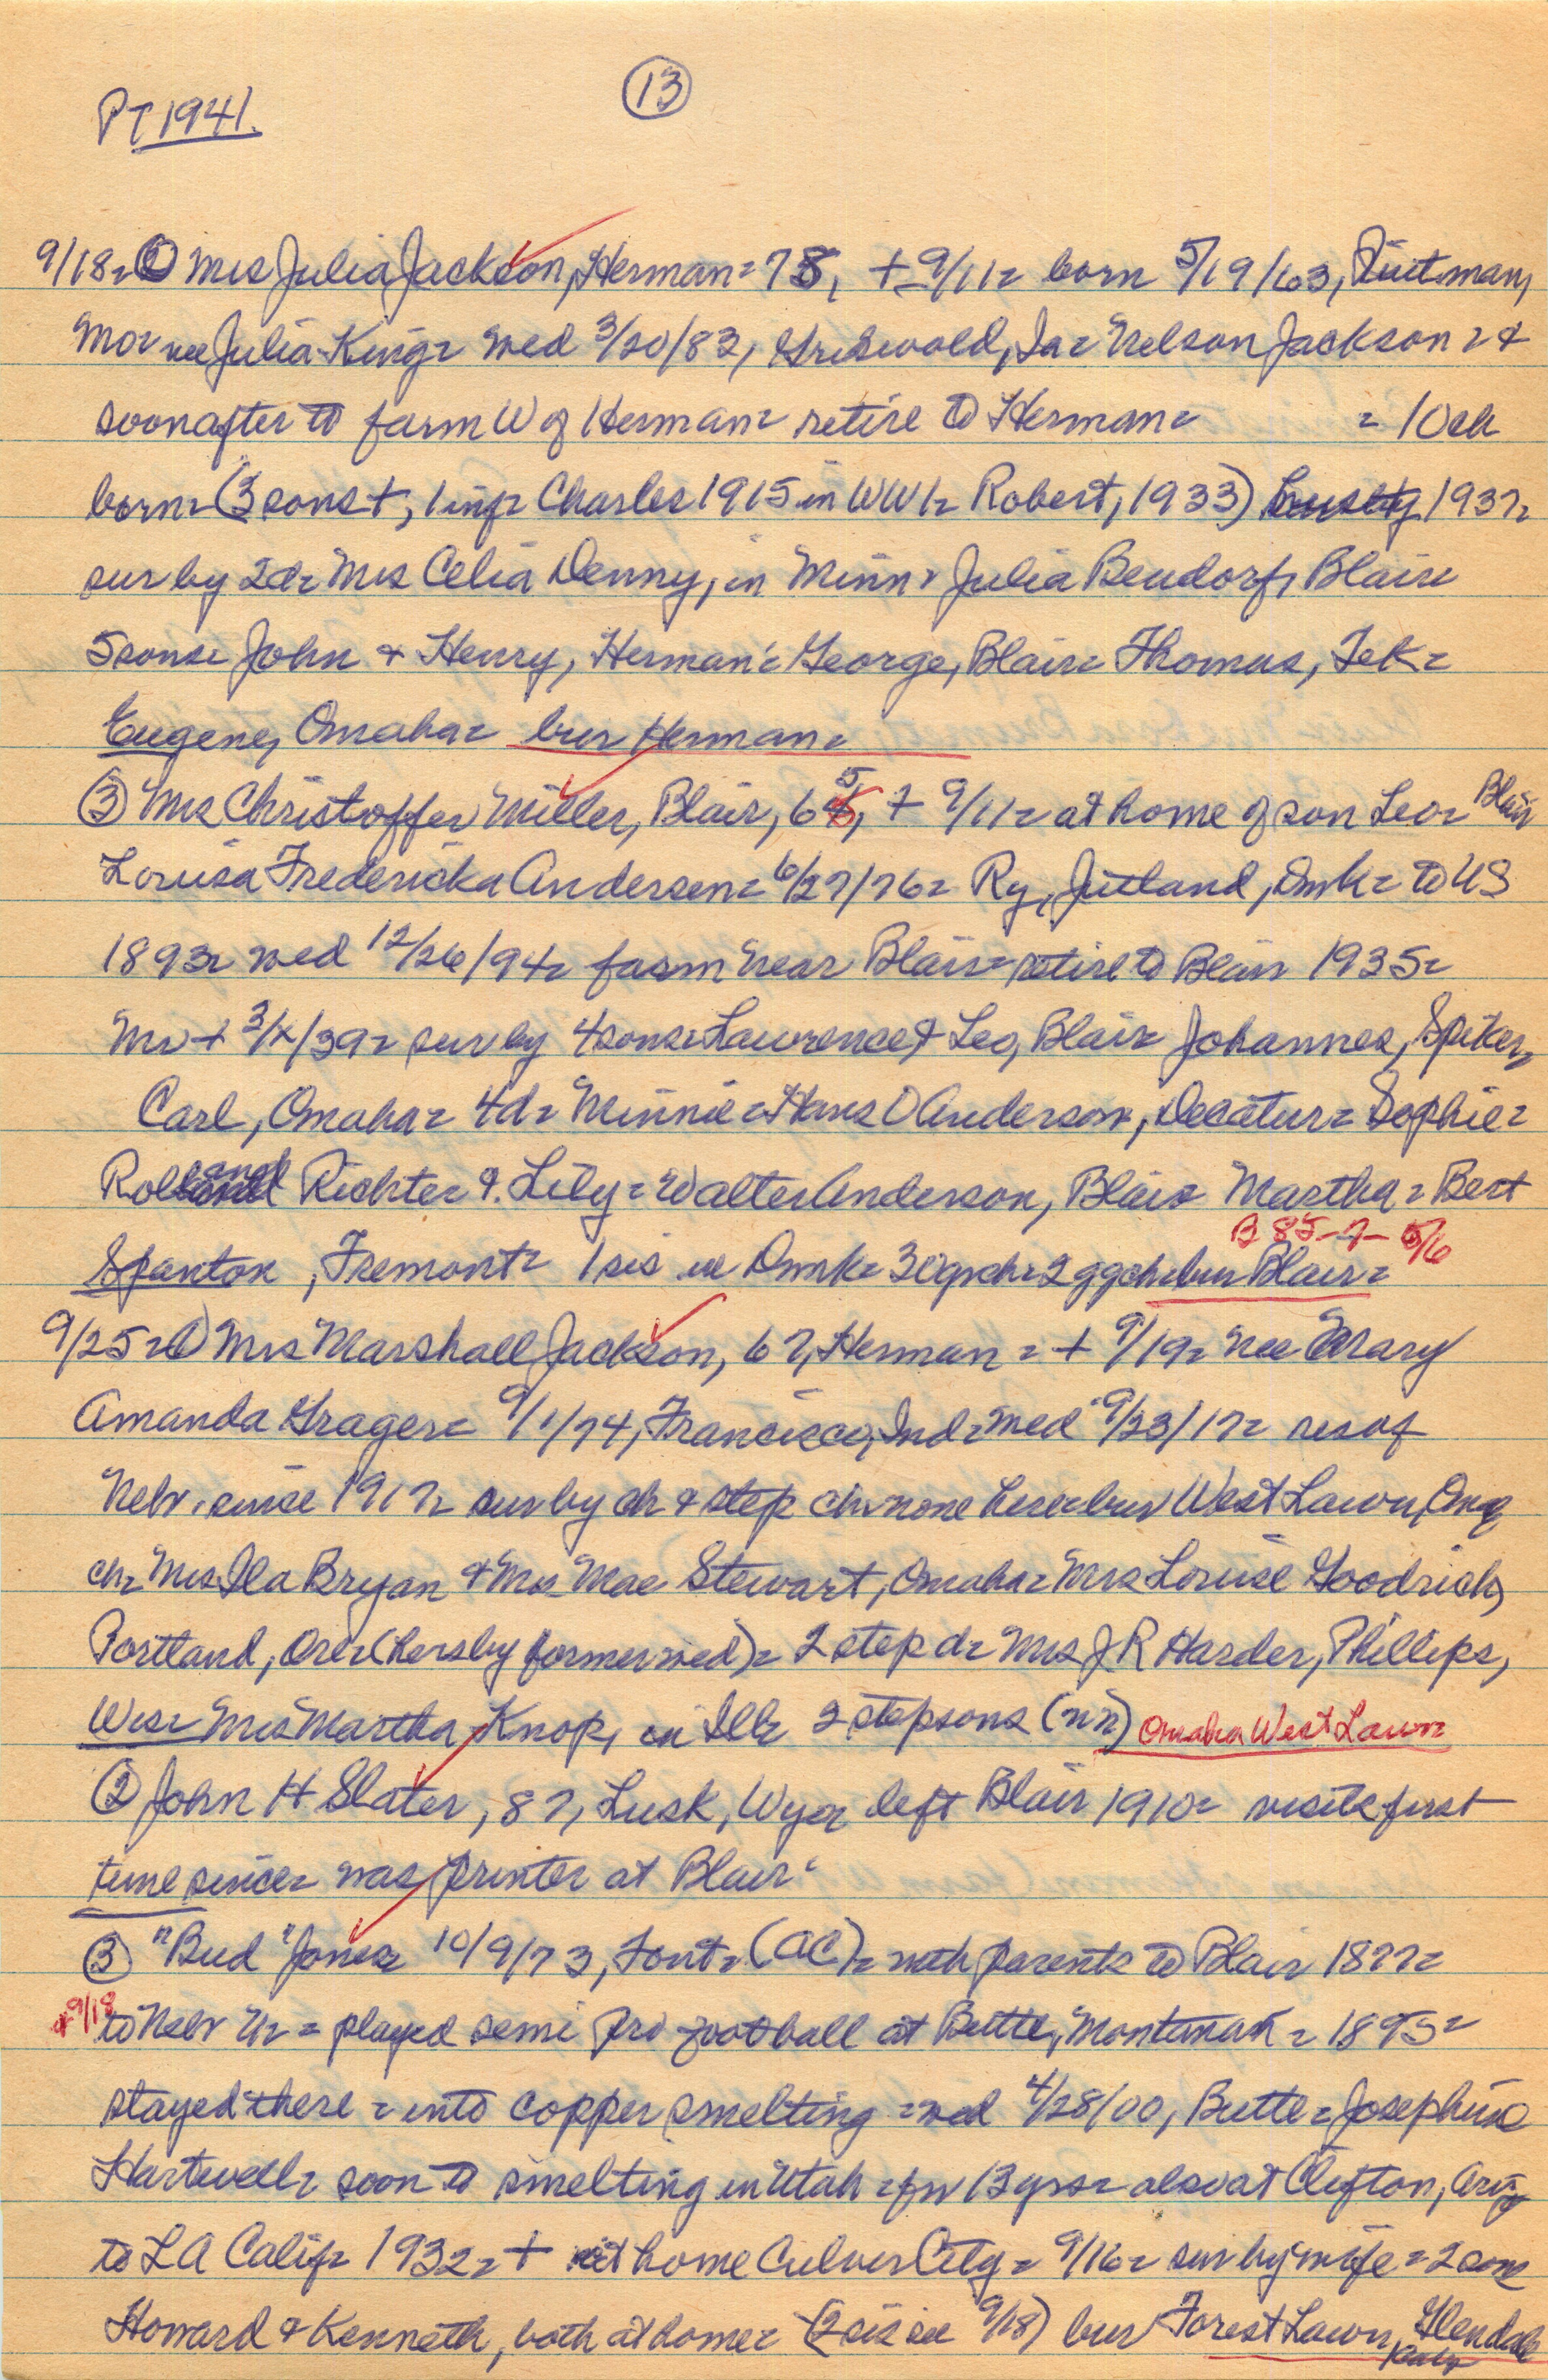 13
PT 1941.
9/18= Mrs Julia Jackson, Herman= 78, + 9/11= born 5/19/63, Quitman,
Mo= nee Julia King= wed 3/20/83, Griswold, Ia= Nelson Jackson= &
soon after to farm W of Herman= retire to Herman= = 10ch
born= (3 sons +, 1 inf= Charles 1915 in WW1= Robert, 1933) 1937=
sur by 2d= Mrs Celia Denny, in Minn & Julia Bendorf, Blair=
5 sons= John & Henry, Herman= George, Blair= Thomas, Tek=
Eugene, Omaha= bur Herman=
③ Mrs Christoffer Miller, Blair, 65, + 9/11= at home of son Leo= Blair
Louisa Fredericka Andersen= 6/27/76= Ry, Jutland, Dmk= to US
1893= wed 12/26/94= farm near Blair= retire to Blair 1935=
Mr + 3/x/39= sur by 4 sons= Lawrence & Leo, Blair= Johannes, Spiker=
Carl, Omaha= 4d= Minnie= Hans O Anderson, Decatur= Sophie=
Rolland Richter & Lily= Walter Anderson, Blair= Martha= Bert
Spanton, Fremont= 1 sis in Dmk= 30 gch= 2 ggch= bur Blair=
B 85-7- 5/6
9/25= ① Mrs Marshall Jackson, 67, Herman= + 9/19= nee Mary
Amanda Grager= 9/1/74, Francisco, Ind= wed 9/23/17= res of
Nebr. since 1917= sur by ch & step ch= none here= bur West Lawn, Oma
ch= Mrs Ila Bryan & Mrs Mae Stewart, Omaha= Mrs Louise Goodrich,
Portland, Ore= (hers by former wed)= 2 step d= Mrs J R Harder, Phillips,
Wis= Mrs Martha Knop, in Ill= 2 stepsons (nn) Omaha West Lawn=
② John H Slater, 87, Lusk, Wyo= left Blair 1910= visits first
time since= was printer at Blair=
③ "Bud" Jones= 10/9/73, Font= (AC)= with parents to Blair 1877=
& 9/18 to Nebr U= = played semi pro football at Butte, Montana= 1895=
stayed there= into copper smelting= wed 4/28/00, Butte= Josephine
Hartwell= soon to smelting in Utah= for 13 yrs= also at Clifton, Ariz
to LA Calif= 1932= + at home Culver City= 9/16= sur by wife= 2 sons
Howard & Kenneth, both at home= (2 sis see 9/18) bur Forest Lawn, Glendale
Calif